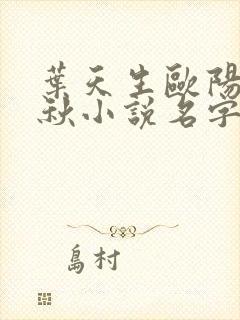 葉天生歐陽
秋小說名字
島村